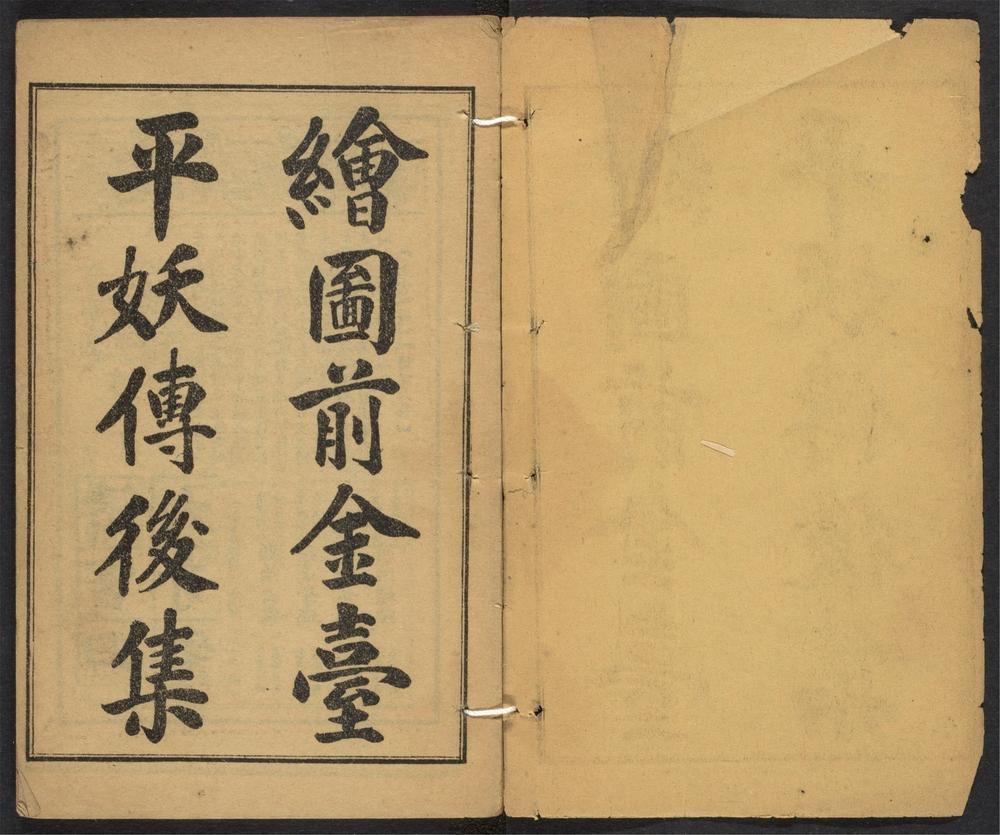 繪圖前金臺
平妖傳後集